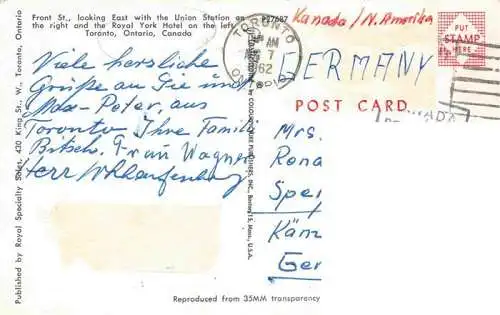 Front St., looking East with the Union Station on
the right and the Royal York Hotel on the left.
Toronto, Ontario, Canada
P27687
Kanada / N. Amerika
PUT
STAMP
HERE
TORONTO
AM
7
62
GERMANY
POST CARD
Viele herzliche
Grüße an Sie und
Max-Peter, aus
Toronto Ihre Famili
Britsch. Frau Wagner
Herr
Mrs.
Rena
Spei
Käm
Ger
Published by Royal Specialty Sales, 420 King St., W., Toronto, Ontario
PUBLISHERS, INC., Boston 15, Mass., U.S.A.
Reproduced from 35MM transparency